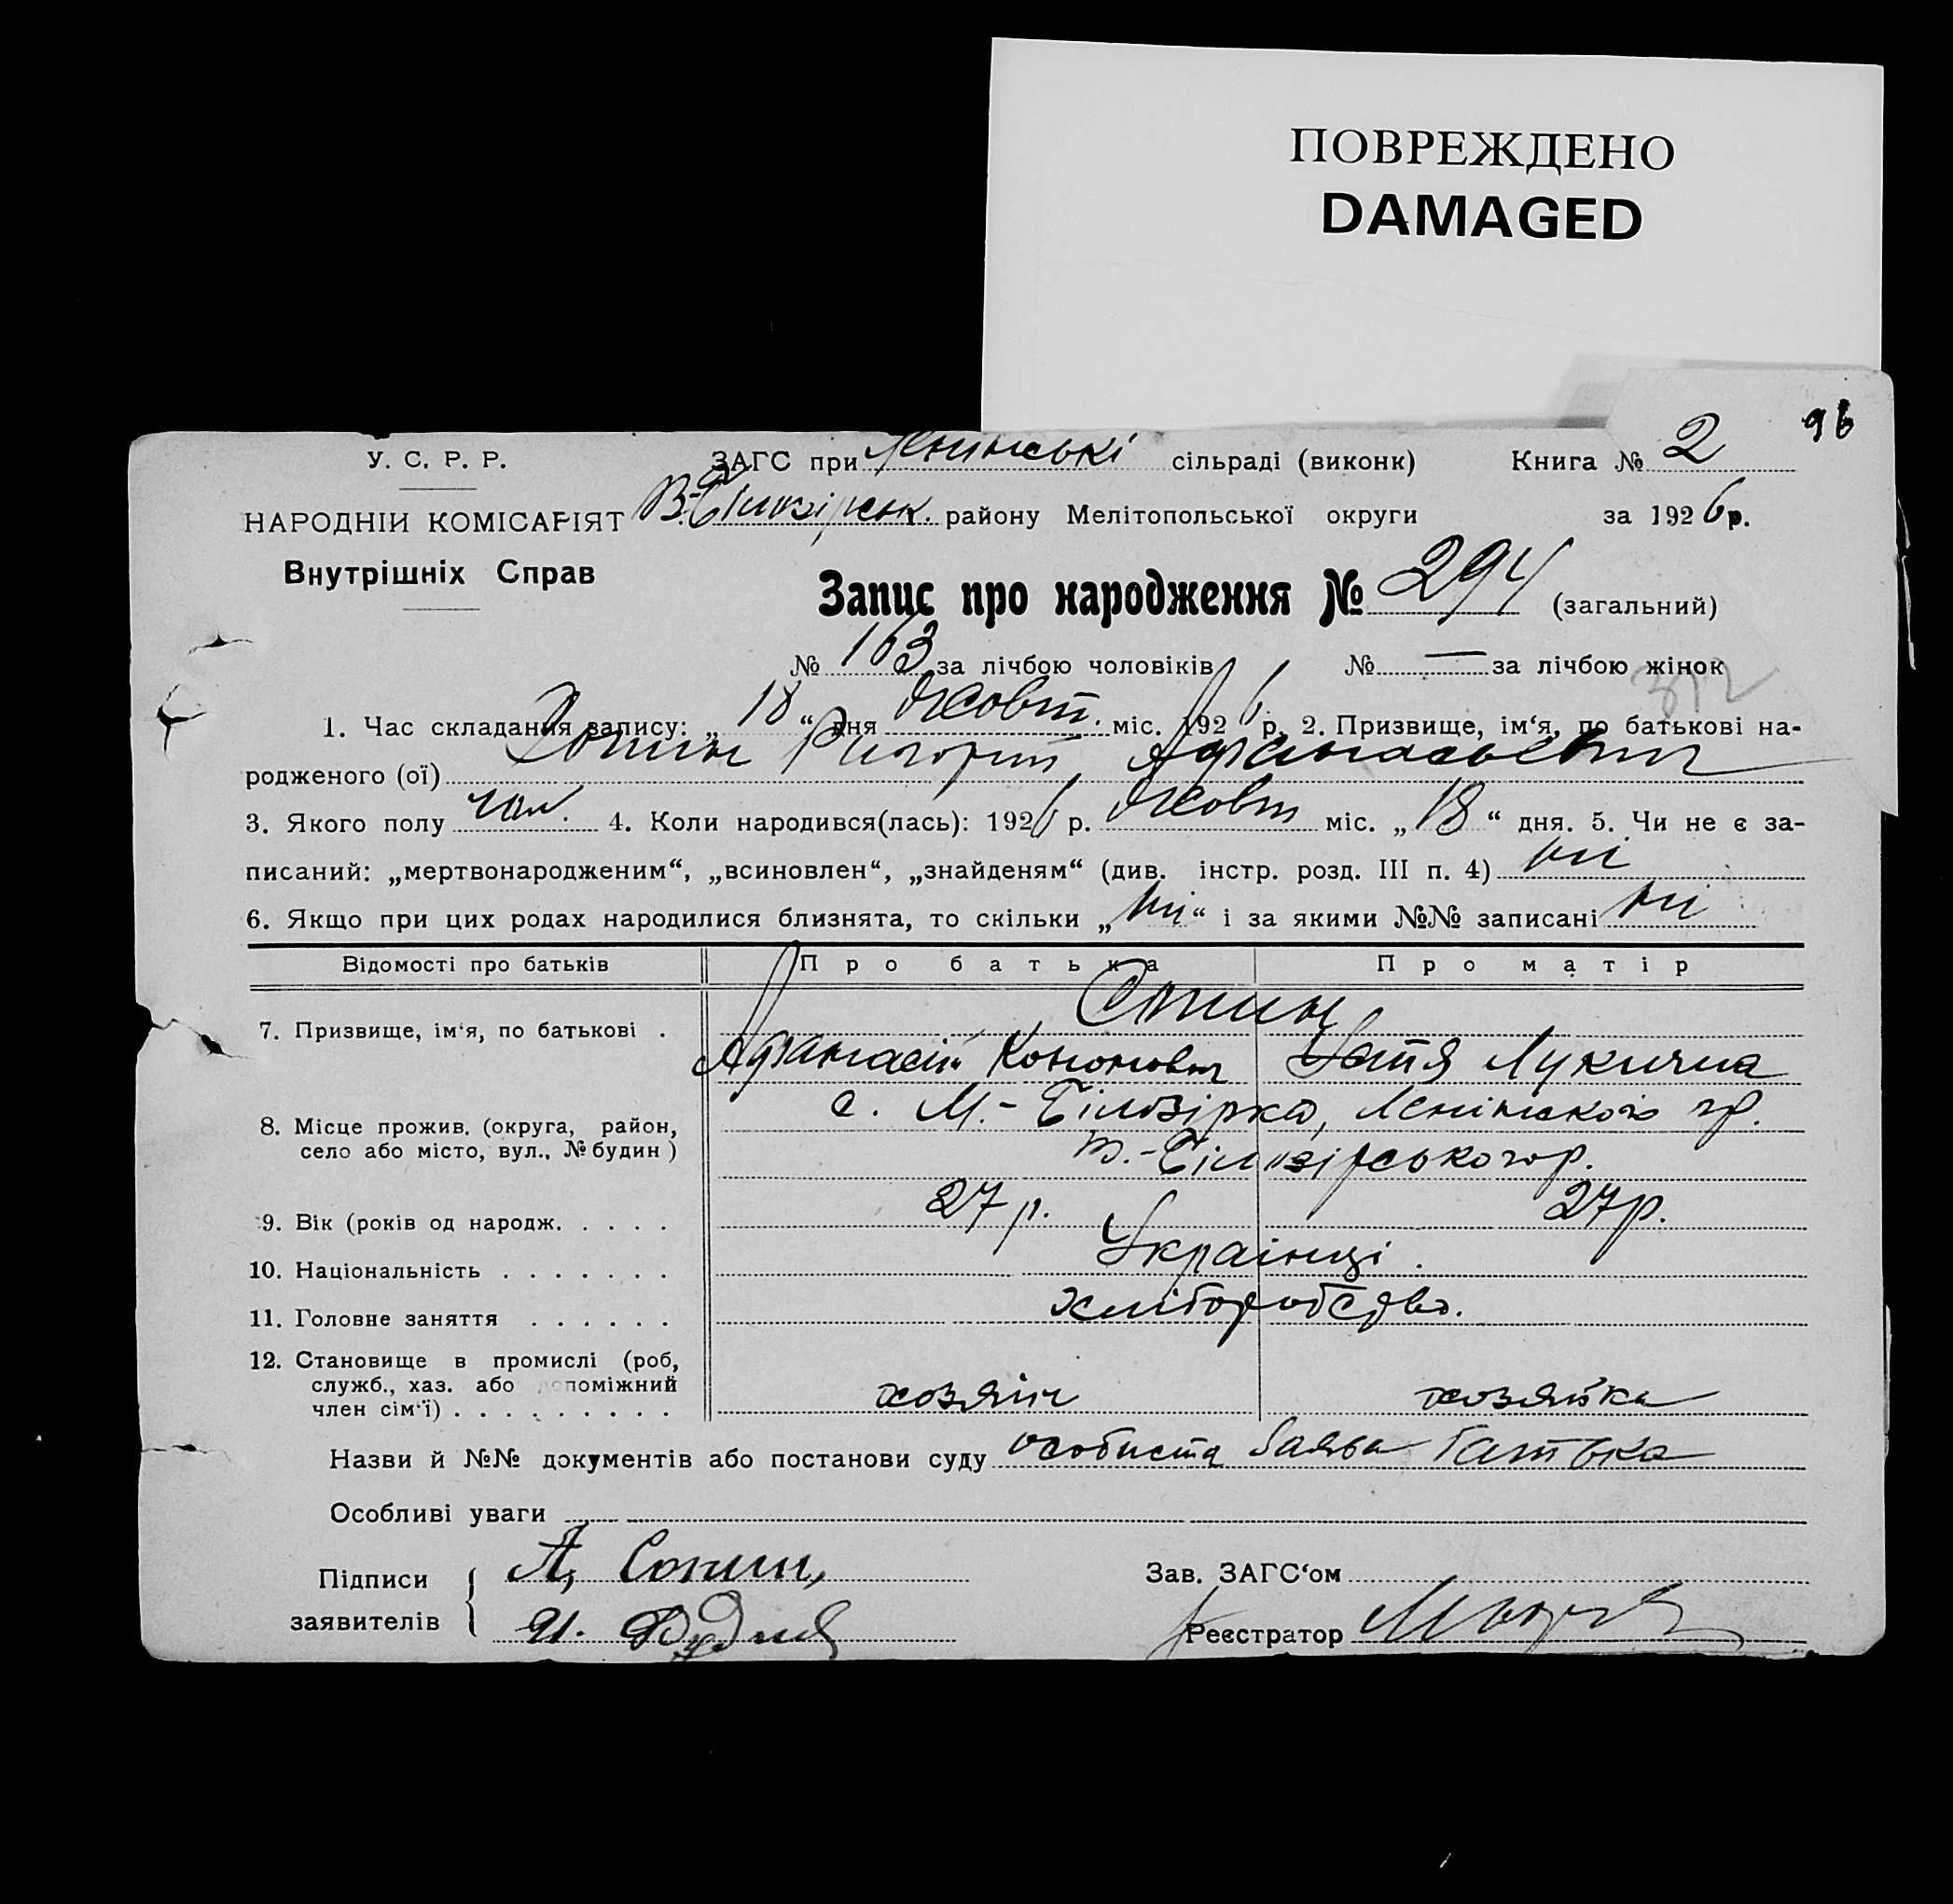 ПОВРЕЖДЕНО
DAMAGED
96
У. С. Р. Р.
ЗАГС при Ленинські сільраді (виконк) Книга № 2
НАРОДНІЙ КОМІСАРІЯТ В.-Білозірськ. району Мелітопольської округи за 1926 р.
Внутрішніх Справ
Запис про народження № 294 (загальний)
№ 163 за лічбою чоловіків № — за лічбою жінок
312
1. Час складання запису: „18“ дня Жовт. міс. 1926 р. 2. Призвище, ім‘я, по батькові на-
родженого (ої) Сопин Григорий Афанасьевич
3. Якого полу чол. 4. Коли народився(лась): 1926 р. Жовт міс. „18“ дня. 5. Чи не є за-
писаний: „мертвонародженим“, „всиновлен“, „знайденям“ (див. інстр. розд. III п. 4) ні
6. Якщо при цих родах народилися близнята, то скільки „ні“ і за якими №№ записані ні
Відомості про батьків Про батька Про матір
7. Призвище, ім‘я, по батькові . Сопин
Афанасій Кононович Лукична
8. Місце прожив. (округа, район, с. М.-Білозірка, Ленінського
село або місто, вул., № будин) В.-Білозірського р.
9. Вік (років од народж. . . . . 27 р. 27 р.
10. Національність . . . . . . . Українці.
11. Головне заняття . . . . . . хліборобство.
12. Становище в промислі (роб,
служб., хаз. або допоміжний
член сім‘ї) . . . . . . . . . хозяін хозяйка
Назви й №№ документів або постанови суду особиста заява батька
Особливі уваги
Підписи А, Сопин, Зав. ЗАГС‘ом
заявителів И. Реєстратор